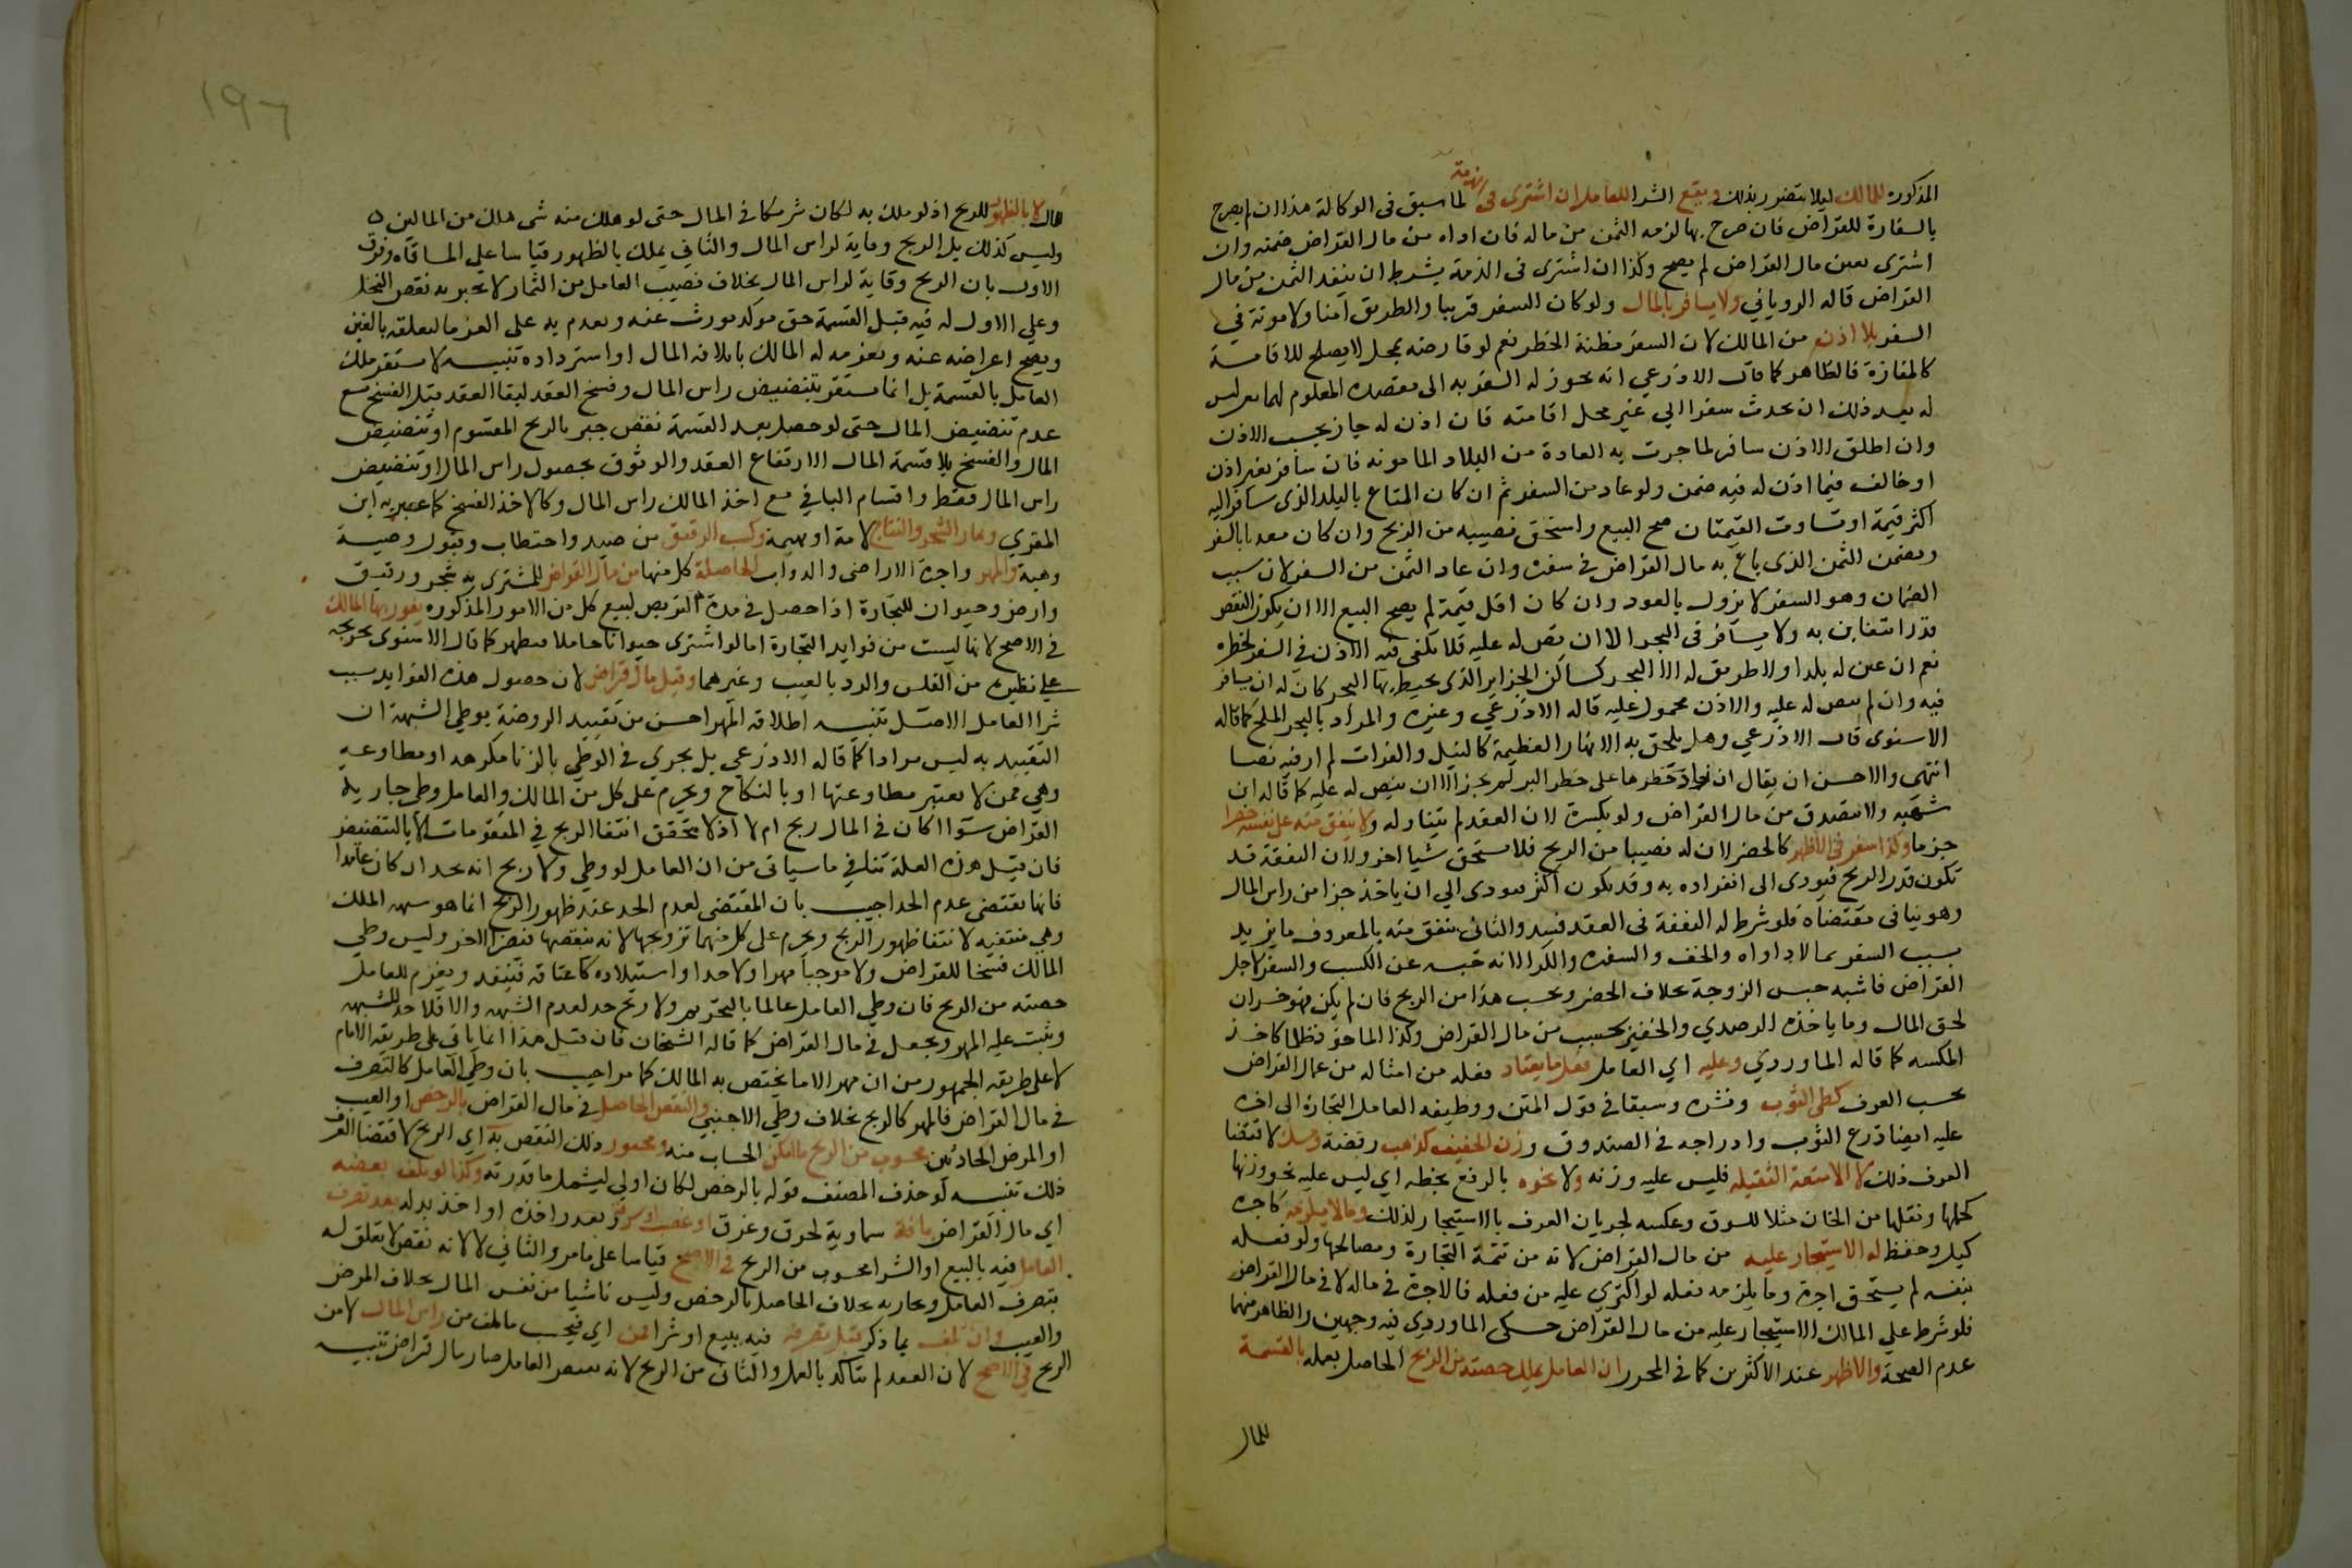 المذكورة للمالك ليلا يتضرر بذلك ويقع الشرا للعامل ان اشترى في ذمته لما سبق في الوكالة هذا ان لم يصرح
بالسفارة للقراض فان صرح بها لزمه الثمن من ماله فان اداه من مال القراض ضمنه وان
اشترى بعين مال القراض لم يصح وكذا ان اشترى في الذمة بشرط ان ينقد الثمن من مال
القراض قاله الروياني ولا يسافر بالمال ولو كان السفر قريبا والطريق آمنا ولا مونة في
السفر بلا اذن من المالك لان السفر مظنة الخطر نعم لو قارضه بمحل لا يصلح للاقامة
كالمفازة فالظاهر كما قال الاذرعي انه يجوز له السفر به الى مقصده المعلوم لهما ثم ليس
له بعد ذلك ان يحدث سفرا الي غير محل اقامته فان اذن له جاز بحسب الاذن
وان اطلق الاذن سافر لما جرت به العادة من البلاد المامونه فان سافر بغير اذن
او خالف فيما اذن له فيه ضمن ولو عاد من السفر ثم ان كان المتاع بالبلد الذي سافر اليه
اكثر قيمة او تساوت القيمتان صح البيع واستحق نصيبه من الربح وان كان متعديا بالسفر
ويضمن الثمن الذي باع به مال القراض في سفره وان عاد الثمن من السفر لان سبب
الضمان وهو السفر لا يزول بالعود وان كان اقل قيمة لم يصح البيع الا ان يكون النقص
قدرا يتغابن به ولا يسافر في البحر الا ان ينص له عليه فلا يكفي فيه الاذن في السفر لخطره
نعم ان عين له بلدا ولا طريق له الا البحر كساكن الجزاير الذي يحيط بها البحر كان له ان يسافر
فيه وان لم ينص له عليه والاذن محمول عليه قاله الاذرعي وغيره والمراد بالبحر الملح كما قاله
الاسنوى قال الاذرعي وهل يلحق به الانهار العظيمة كالنيل والفرات لم ار فيه نصا
انتهى والاحسن ان يقال ان زاد خطرها على خطر البر لم يجز الا ان ينص له عليه كما قاله ابن
شهبه ولا يتصدق من مال القراض ولو بكسرة لان العقد لم يتناوله ولا ينفق منه على نفسه حضرا
جزما وكذا سفر في الاظهر كالحضر لان له نصيبا من الربح فلا يستحق شيا اخر ولان النفقة قد
تكون قدر الربح فيودى الى انفراده به وقد يكون اكثر فيودى الي ان ياخذ جزا من راس المال
وهو ينافى مقتضاه فلو شرط له النفقة في العقد فسد والثاني ينفق منه بالمعروف ما يزيد
بسبب السفر كالاداواه والخف والسفره والكرا لانه حبسه عن الكسب والسفر لاجل
القراض فاشبه حبس الزوجة بخلاف الحضر ويحسب هذا من الربح فان لم يكن فهو خسران
لحق المال وما ياخذه الرصدي والخفير يحسب من مال القراض وكذا الماخوذ ظلما كاخذ
المكسه كما قاله الماوردي وعليه اي العامل فعل ما يعتاد فعله من امثاله من عمال القراض
بحسب العرف كطي الثوب ونشره وسبقا في قول المتن ووظيفه العامل التجارة الى اخره
عليه ايضا ذرع الثوب وادراجه في الصندوق ووزن الخفيف كذهب وفضة ومسك لاقتضا
العرف ذلك لا الامتعة الثقيله فليس عليه وزنه ولا نحوه بالرفع بخطه اي ليس عليه نحو وزنها
كحملها ونقلها من الخان مثلا للسوق وعكسه لجريان العرف بالاستيجار لذلك وما لا يلزمه كاجرة
كيل وحفظ له الاستيجار عليه من مال القراض لانه من تتمة التجارة ومصالحها ولو فعله
بنفسه لم يستحق اجرة وما يلزمه فعله لو اكترى عليه من فعله فالاجرة في ماله لا في مال القراض
فلو شرط علي المالك الاستيجار عليه من مال القراض حكى الماوردي فيه وجهين والظاهر منهما
عدم الصحة والاظهر عند الاكثرين كما في المحرر ان العامل يملك حصته من الربح الحاصل بعمله بالقسمة
للمال
للمال لا بالظهور للربح اذ لو ملك به لكان شريكا في المال حتى لو هلك منه شي هلك من المالين
وليس كذلك بل الربح وقاية لراس المال والثاني يملك بالظهور قياسا علي المساقاه وفرق
الاول بان الربح وقاية لراس المال بخلاف نصيب العامل من الثمار لا يجبر به نقص النخل
وعلي الاول له فيه قبل القسمة حق موكد يورث عنه ويقدم به على الغرما لتعلقه بالعين
ويصح اعراضه عنه ويغرمه له المالك باتلافه المال او استرداده تنبيه لا يستقر ملك
العامل بالقسمة بل انما يستقر بتنضيض راس المال وفسخ العقد لبقا العقد قبل الفسخ مع
عدم تنضيض المال حتى لو حصل بعد القسمة نقص جبر بالربح المقسوم او تنضيض
المال والفسخ بلا قسمة المال لارتفاع العقد والوثوق بحصول راس المال او تنضيض
راس المال فقط واقتسام الباقي مع اخذ المالك راس المال وكالاخذ الفسخ كما عبر به ابن
المقري وثمار الشجر والنتاج لامة او بهيمة وكسب الرقيق من صيد واحتطاب وقبول وصية
وهبة والمهر واجرة الاراضى والدواب الحاصلة كل منها من مال القراض المشترى به شجر ورقيق
وارض وحيوان للتجارة اذا حصل في مدة التربص لبيع كل من الامور المذكوره يفوز بها المالك
في الاصح لانها ليست من فوايد التجارة اما لو اشترى حيوانا حاملا فيظهر كما قال الاسنوى تخريجه
علي نظيره من الفلس والرد بالعيب وغيرهما وقيل مال قراض لان حصول هذه الفوايد بسبب
شرا العامل الاصل تنبيه اطلاقه المهر احسن من تقييد الروضة بوطي الشبهة لان
التقييد به ليس مرادا كما قاله الاذرعي بل يجري في الوطي بالزنا مكرهه او مطاوعه
وهي ممن لا يعتبر مطاوعتها او بالنكاح ويحرم على كل من المالك والعامل وطي جارية
القراض سوا اكان في المال ربح ام لا اذ لا يتحقق انتفا الربح في المتقومات الا بالتنضيض
فان قيل هذه العلة تنافي ما سياتى من ان العامل لو وطي ولا ربح انه يحد ان كان عالما
فانها تقتضي عدم الحد اجيب بان المقتضى لعدم الحد عند ظهور الربح انما هو شبهه الملك
وهي منتفيه لانتفا ظهور الربح ويحرم على كل منهما تزويجها لانه ينقصها فيضر الاخر وليس وطي
المالك فسخا للقراض ولا موجبا مهرا ولا حدا واستيلاده كاعتاقه فينفذ ويغرم للعامل
حصته من الربح فان وطي العامل عالما بالتحريم ولا ربح حد لعدم الشبهه والا فلا حد للشبهه
ويثبت عليه المهر ويجعل في مال القراض كما قاله الشيخان فان قيل هذا انما ياتي على طريقه الامام
لا على طريقه الجمهور من ان مهر الاما يختص به المالك كما مر اجيب بان وطي العامل كالتصرف
في مال القراض فالمهر كالربح بخلاف وطي الاجنبي والنقص الحاصل في مال القراض بالرخص او العيب
او المرض الحادثين محسوب من الربح ما امكن الحساب منه ومجبور ذلك النقص به اي الربح لاقتضا العرف
ذلك تنبيه لو حذف المصنف قوله بالرخص لكان اولى ليشمل ما قدرته وكذا لو تلف بعضه
اي مال القراض بافة سماوية لحرق وغرق او غصب او سرق وتعذر اخذه او اخذ بدله بعد تصرف
العامل فيه بالبيع او الشرا محسوب من الربح في الاصح قياسا على ما مر والثاني لا لانه نقص لا تعلق له
بتصرف العامل وتجارته بخلاف الحاصل بالرخص وليس ناشيا من نفس المال بخلاف المرض
والعيب وان تلف بما ذكر قبل تصرفه فيه ببيع او شرا فمن اي فيحسب ما تلف من راس المال لا من
الربح في الاصح لان العقد لم يتاكد بالعمل والثاني من الربح لانه بقبض العامل صار مال قراض تنبيه